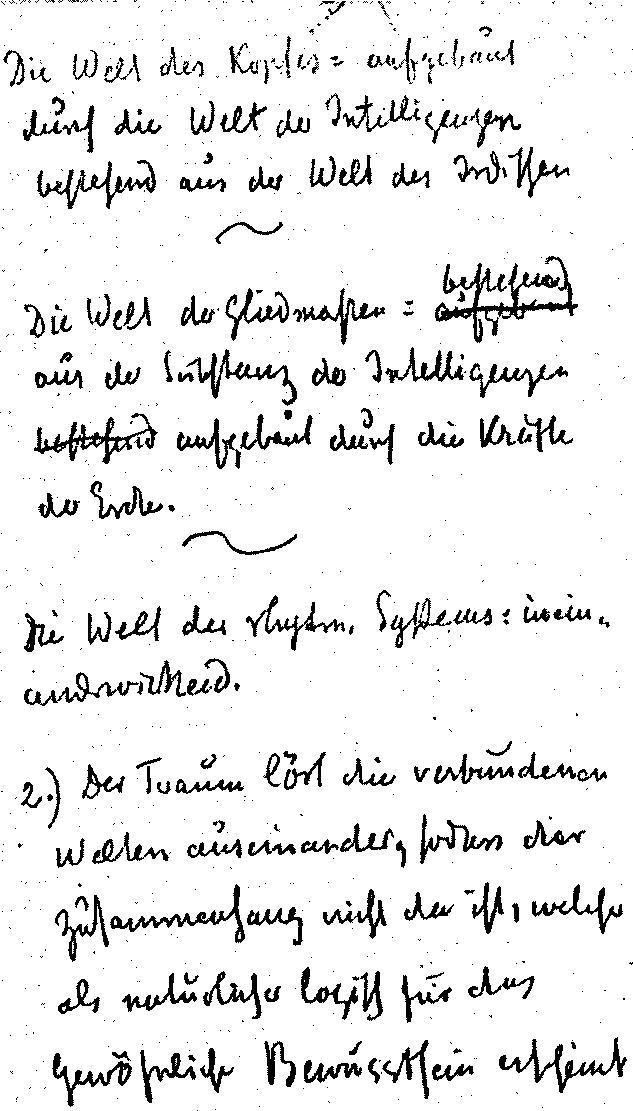 Die Welt des Kopfes = aufgebaut
durch die Welt der Intelligenzen
bestehend aus der Welt des Irdischen
Die Welt der Gliedmassen = bestehend aufgebaut
aus der Substanz der Intelligenzen
bestehend aufgebaut durch die Kräfte
der Erde.
Die Welt des rhythm. Systems: inein-
anderwirkend.
2.) Der Traum löst die verbundenen
Welten auseinander, sodass der
Zusammenhang nicht da ist, welcher
als natürlicher logisch für das
gewöhnliche Bewusstsein erscheint